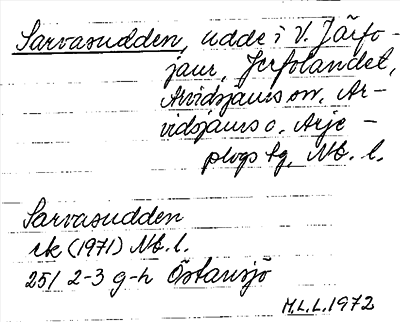 Sarvasudden, udde i V. Järfo-
jaur, Jerfolandet,
Arvidsjaurs sn, Ar-
vidsjaurs o. Arje-
plogs tg, Nb. l.
Sarvasudden
rk (1971) Nb. l.
25I 2-3 g-h Östansjö
M.L.L. 1972